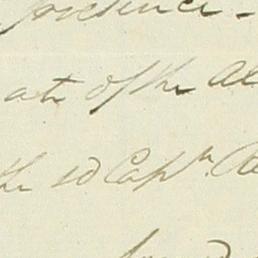 presence -
at of the Al
the sd Capn. Re